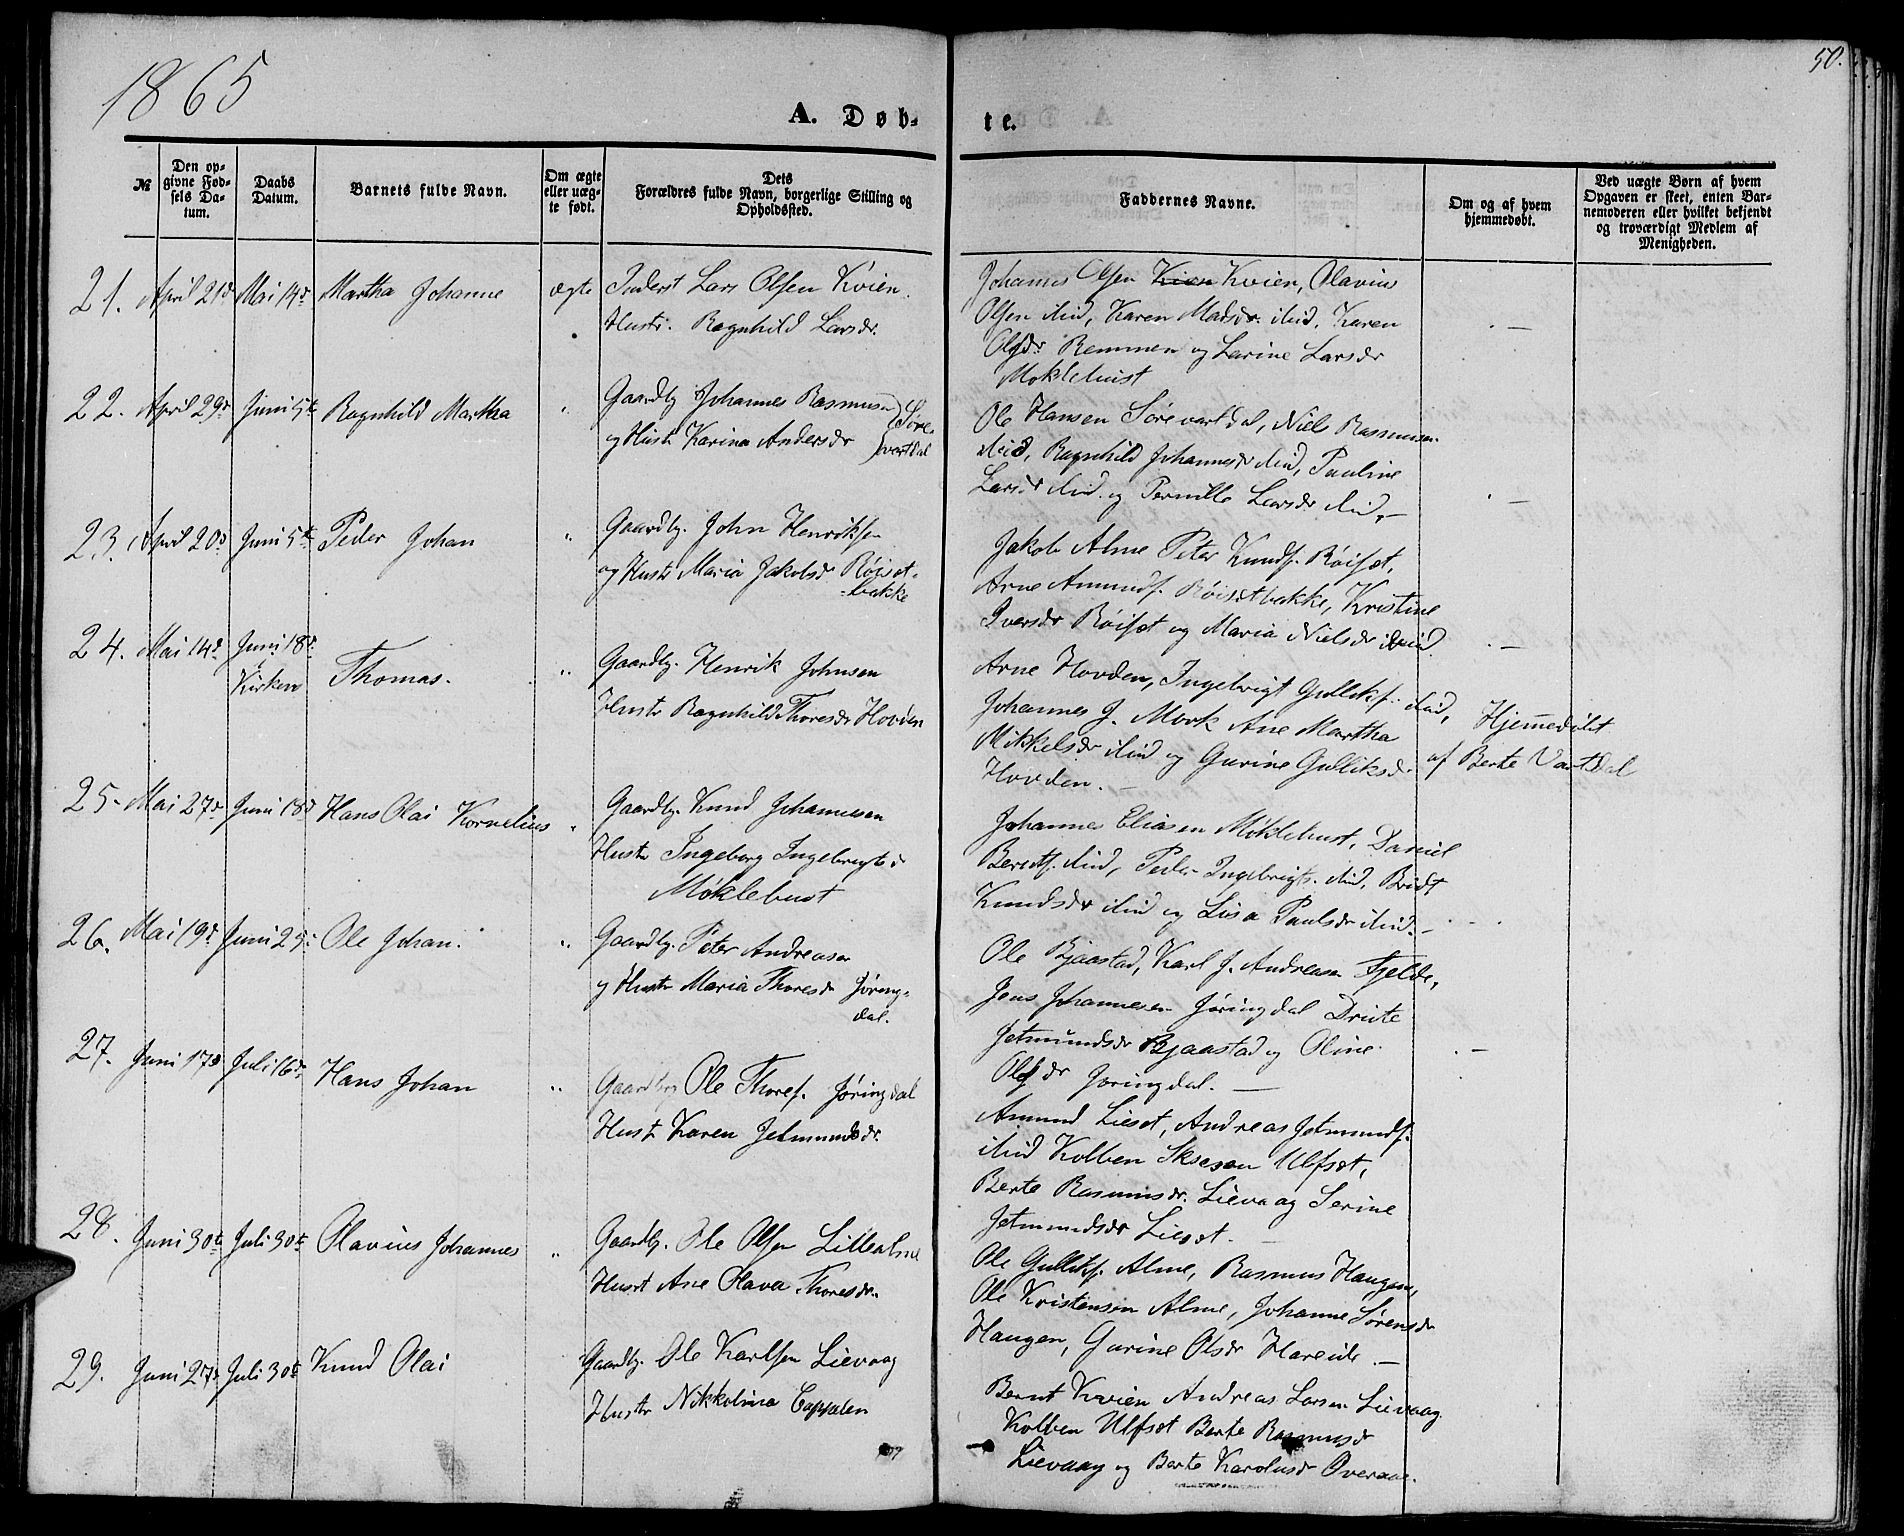 1865
50.
A. Døb-
te.
№
Den op-
givne Fød-
sels Da-
tum.
Daabs
Datum.
Barnets fulde Navn.
Om ægte
eller uæg-
te født.
Dets
Forældres fulde Navn, borgerlige Stilling og
Opholdssted.
Faddernes Navne.
Om og af hvem
hjemmedøbt.
Ved uægte Børn af hvem
Opgaven er skeet, enten Bar-
nemoderen eller hvilket bekjendt
og troværdigt Medlem af
Menigheden.
21. April 21d Mai 14d Martha Johanne ægte
Inderst Lars Olsen Kvien.
Hustr. Ragnhild Larsdr.
Johannes Olsen Kvien Kvien, Olavius
Olsen ibid, Karen Madsdr. ibid, Karen
Olsdr Remmen og Larine Larsdr
Moklebust
22. April 29d Juni 5te Ragnhild Martha "
Gaardbr. Johannes Rasmusen
og Hustr Karina Andersdr
Søre
vartdal
Ole Hansen Sørevartdal, Niels Rasmusen
ibid, Ragnhild Johannesdr ibid, Pauline
Larsdr ibid. og Pernille Larsdr ibid, –
23. April 20d Juni 5te Peder Johan "
Gaardbr. John Henriksen
og Hustr Maria Jakobsdr Røiset-
bakke
Jakob Alme Peter Knuds. Røiset,
Arne Amunds. Røisetbakke, Kristine
Iversdr Røiset og Maria Nielsdr ibid
24. Mai 14d Juni 18d
Kirken
Thomas. "
Gaardbr. Henrik Johnsen
Hustr Ragnhild Thoresdr Hovden
Arne Hovden, Ingebrigt Gulliks. ibid,
Johannes J. Mork Ane Martha
Mikkelsdr ibid og Gurine Gulliksdr
Hovden. –
Hjemedøbt
af Berte Vartdal
25. Mai 27d Juni 18d Hans Olai Kornelius "
Gaardbr. Knud Johannesen
Hustr Ingeborg Ingebrigtsd
Møklebust
Johannes Eliasen Møklebust, Daniel
Bernts. ibid, Peder Ingebrigts. ibid, Bridt
Knudsdr ibid og Lisa Paulsdr ibid. –
26. Mai 19d Juni 25. Ole Johan. "
Gaardbr. Peter Andreasen
og Hustr Maria Thoresdr Jøring-
dal.
Ole Bjaastad, Karl J. Andreasen Fjelde,
Jens Johannesen Jøringdal Drivte
Jetmundsdr Bjaastad og Oline
Olsdr Jøringdal. –
27. Juni 17d Juli 16d. Hans Johan "
Gaardbrg Ole Thores. Jøringdal
Hustr Karen Jetmundsdr.
Amund Lieset, Andreas Jetmunds.
ibid Kolben Ulfset,
Berte Rasmusdr. Lievaag Serine
Jetmundsdr Lieset.
28. Juni 30te Juli 30te Olavius Johannes "
Gaardbr. Ole Olsen Lillealme
Hustr Ane Olava Thoresdr.
Ole Gulliks. Alme, Rasmus Haugen,
Ole Kristensen Alme, Johanne Sørensdr
Haugen, Gurine Olsdr Hareide. –
29. Juni 27d Juli 30te Knud Olai
Gaardbr. Ole Karlsen Lievaag
Hustr Nikkoline Cappelen
Bernt Kvien Andreas Larsen Lievaag
Kolben Ulfset Berte Rasmusdr
Lievaag og Berte Karolusdr Overaae.